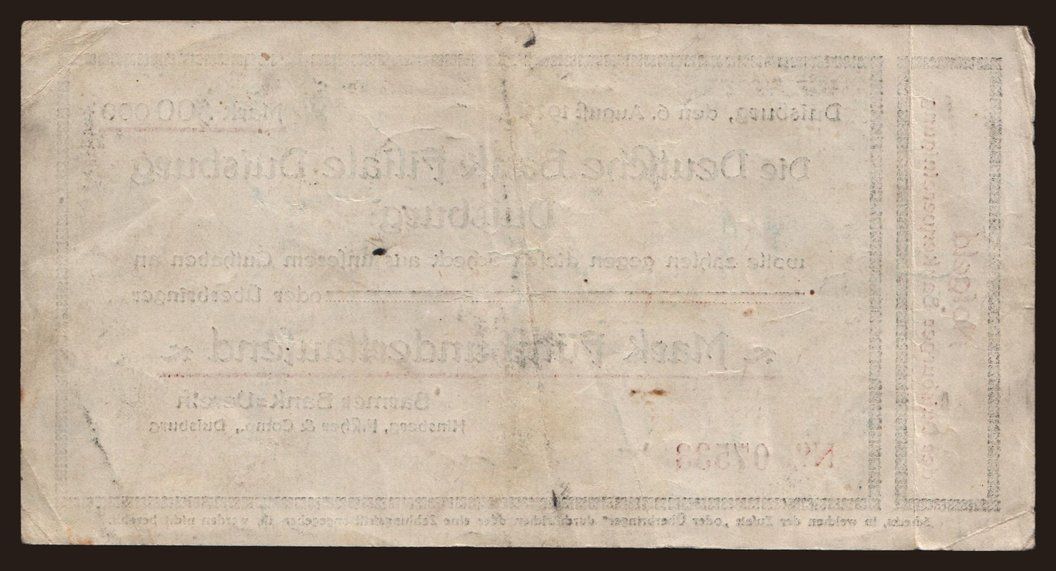 Duisburg, den 6. August 19
Mark 500 000
Die Deutsche Bank Filiale Duisburg
Duisburg
wolle zahlen gegen diesen Scheck aus unserem Guthaben an
oder Überbringer
Mark Fünfhunderttausend
Barmer Bank=Verein
Hinsberg, Fischer & Comp., Duisburg
No. 07533
Schecks, in welchen der Zusatz „oder Überbringer“ durchstrichen oder eine Zahlungsfrist angegeben ist, werden nicht bezahlt.
der Duisburger Bankenvereinigung
Notgeld